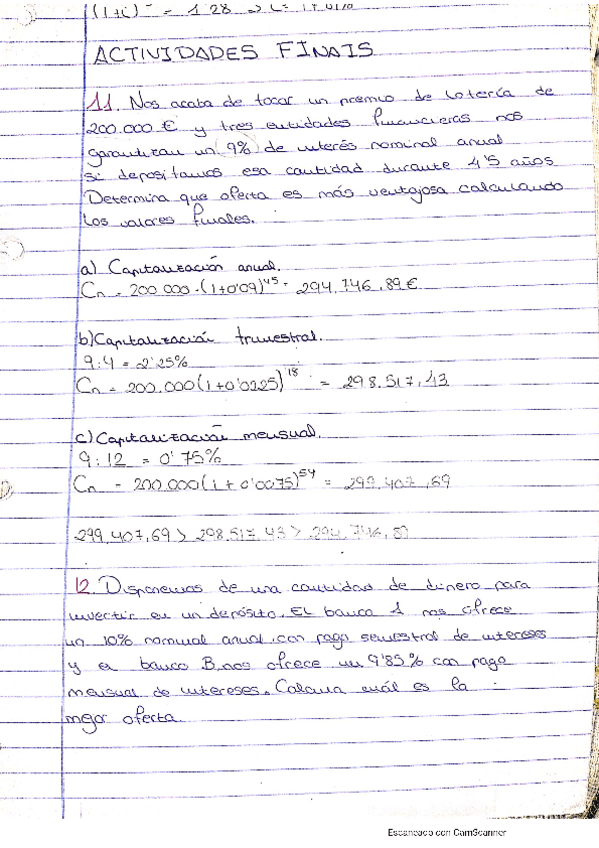 (1+i) = 1'28 =>
ACTIVIDADES FINAIS
11. Nos acaba de tocar un premio de lotería de
200.000 € y tres entidades financieras nos
garantizan un 9% de interés nominal anual
si depositamos esa cantidad durante 4'5 años
Determina que oferta es más ventajosa calculando
los valores finales.
a) Capitalización anual.
Cn = 200 000 · (1+0'09)^4'5 = 294.746,89 €
b) Capitalización trimestral.
9:4 = 2'25%
Cn = 200.000 (1+0'0225)^18 = 298.517,43
c) Capitalización mensual.
9:12 = 0'75%
Cn = 200.000 (1+0'0075)^54 = 299.407,69
299.407,69 > 298.517,43 > 294.746,89
12. Disponemos de una cantidad de dinero para
invertir en un depósito. El banco 1 nos ofrece
un 10% nominal anual con pago semestral de intereses
y el banco B nos ofrece un 9'85% con pago
mensual de intereses. Calcula cuál es la
mejor oferta.
Escaneado con CamScanner